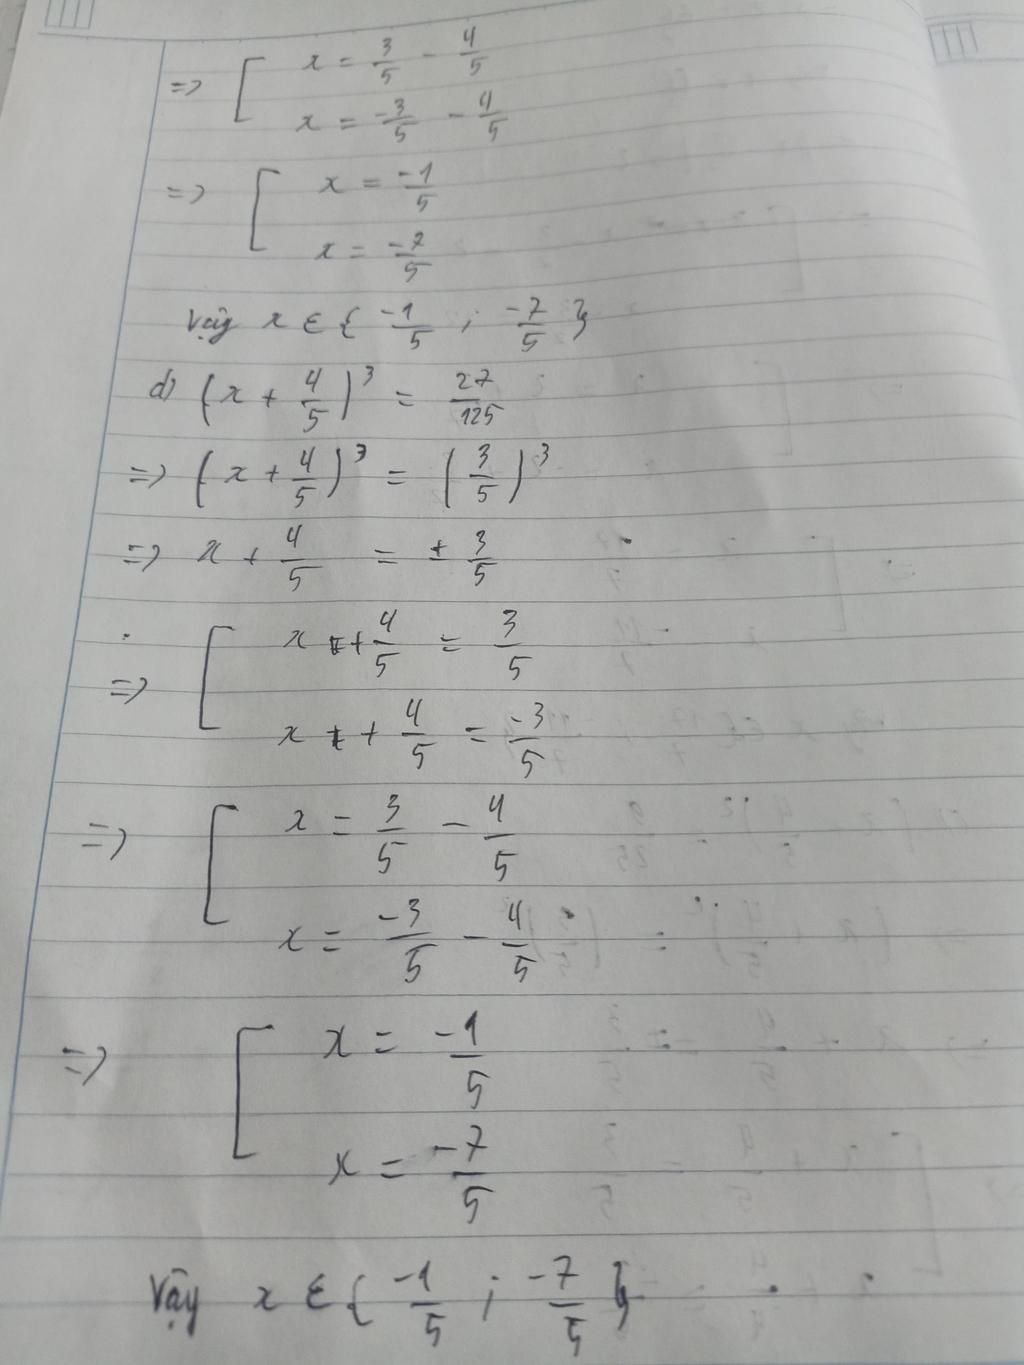 => [ x = 3/5 - 4/5
x = -3/5 - 4/5
=> [ x = -1/5
x = -7/5
Vậy x ∈ { -1/5 ; -7/5 }
d) (x + 4/5)³ = 27/125
=> (x + 4/5)³ = (3/5)³
=> x + 4/5 = ± 3/5
=> [ x + 4/5 = 3/5
x + 4/5 = -3/5
=> [ x = 3/5 - 4/5
x = -3/5 - 4/5
=> [ x = -1/5
x = -7/5
Vậy x ∈ { -1/5 ; -7/5 }